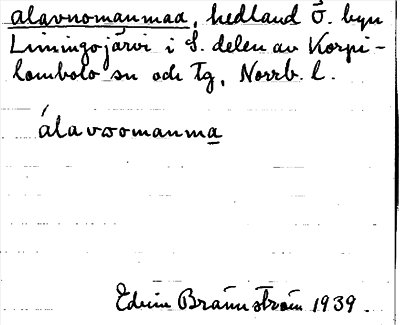 alavuomanmaa, hedland ö. byn
Liviöjärvi i S. delen av Korpi-
lombolo sn och tg, Norrb. l.
álavuomanma
Edvin Brännström 1939.